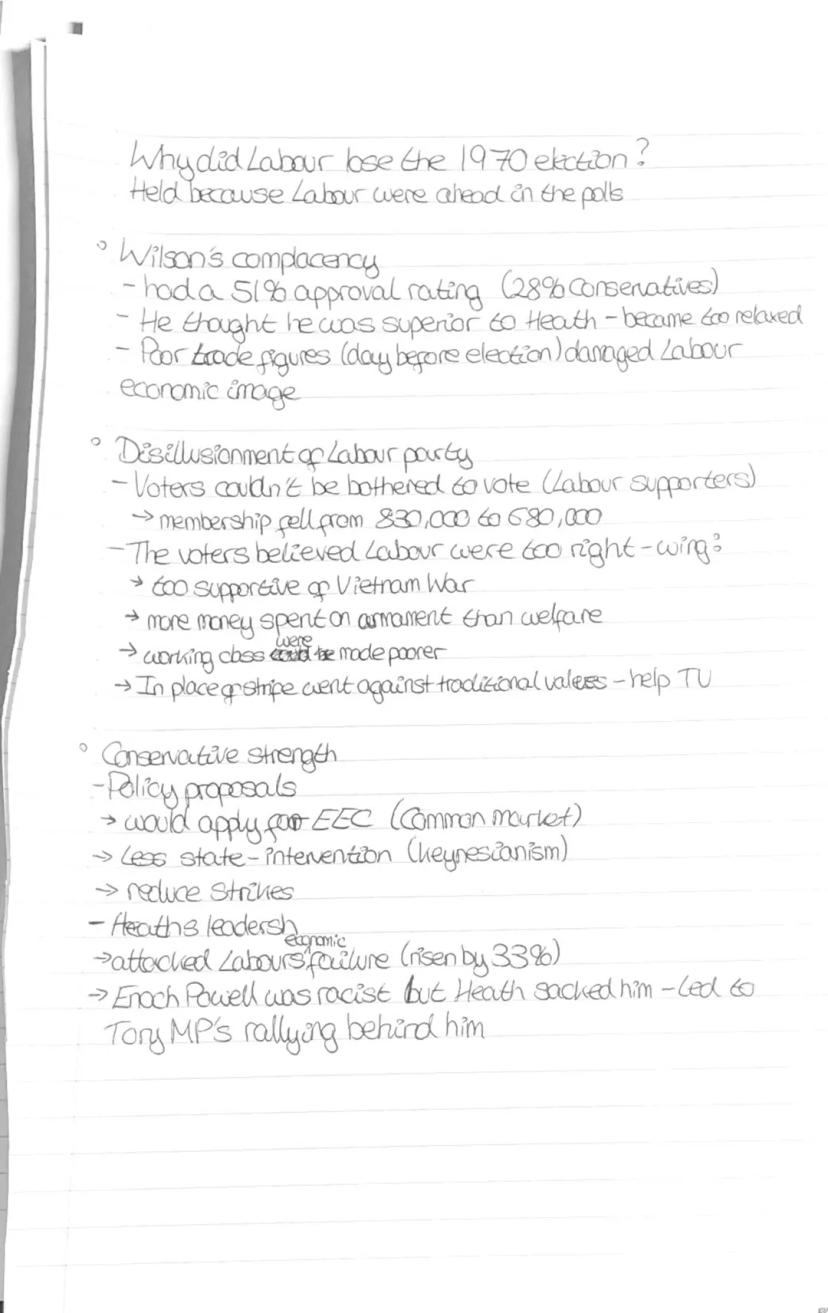 Why did Labour lose the 1970 election?
Held because Labour were ahead in the polls
° Wilson's complacency
- had a 51% approval rating (28% conservatives)
- He thought he was superior to Heath - became too relaxed
- Poor trade figures (day before election) damaged Labour
economic image
° Disillusionment of Labour party
- Voters couldn't be bothered to vote (Labour supporters)
→ membership fell from 830,000 to 680,000
- The voters believed Labour were too right-wing:
→ too supportive of Vietnam War
→ more money spent on armament than welfare
→ working class were made poorer
→ In place of stripe went against traditional values - help TU
° Conservative strength
- Policy proposals
→ would apply for EEC (Common market)
→ Less state-intervention (keynesianism)
→ reduce strikes
- Heaths leadersh
→ attacked Labours economic failure (risen by 33%)
→ Enoch Powell was racist but Heath sacked him - Led to
Tory MP's rallying behind him